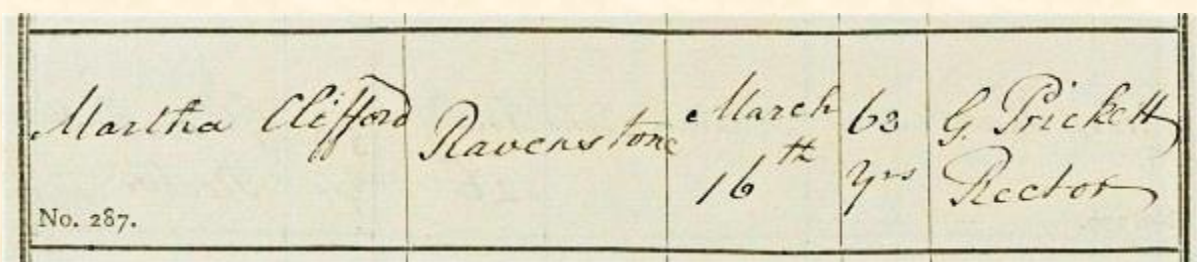 Martha Clifford
No. 287.
Ravenstone
March
16th
63
yrs
G. Prickett
Rector